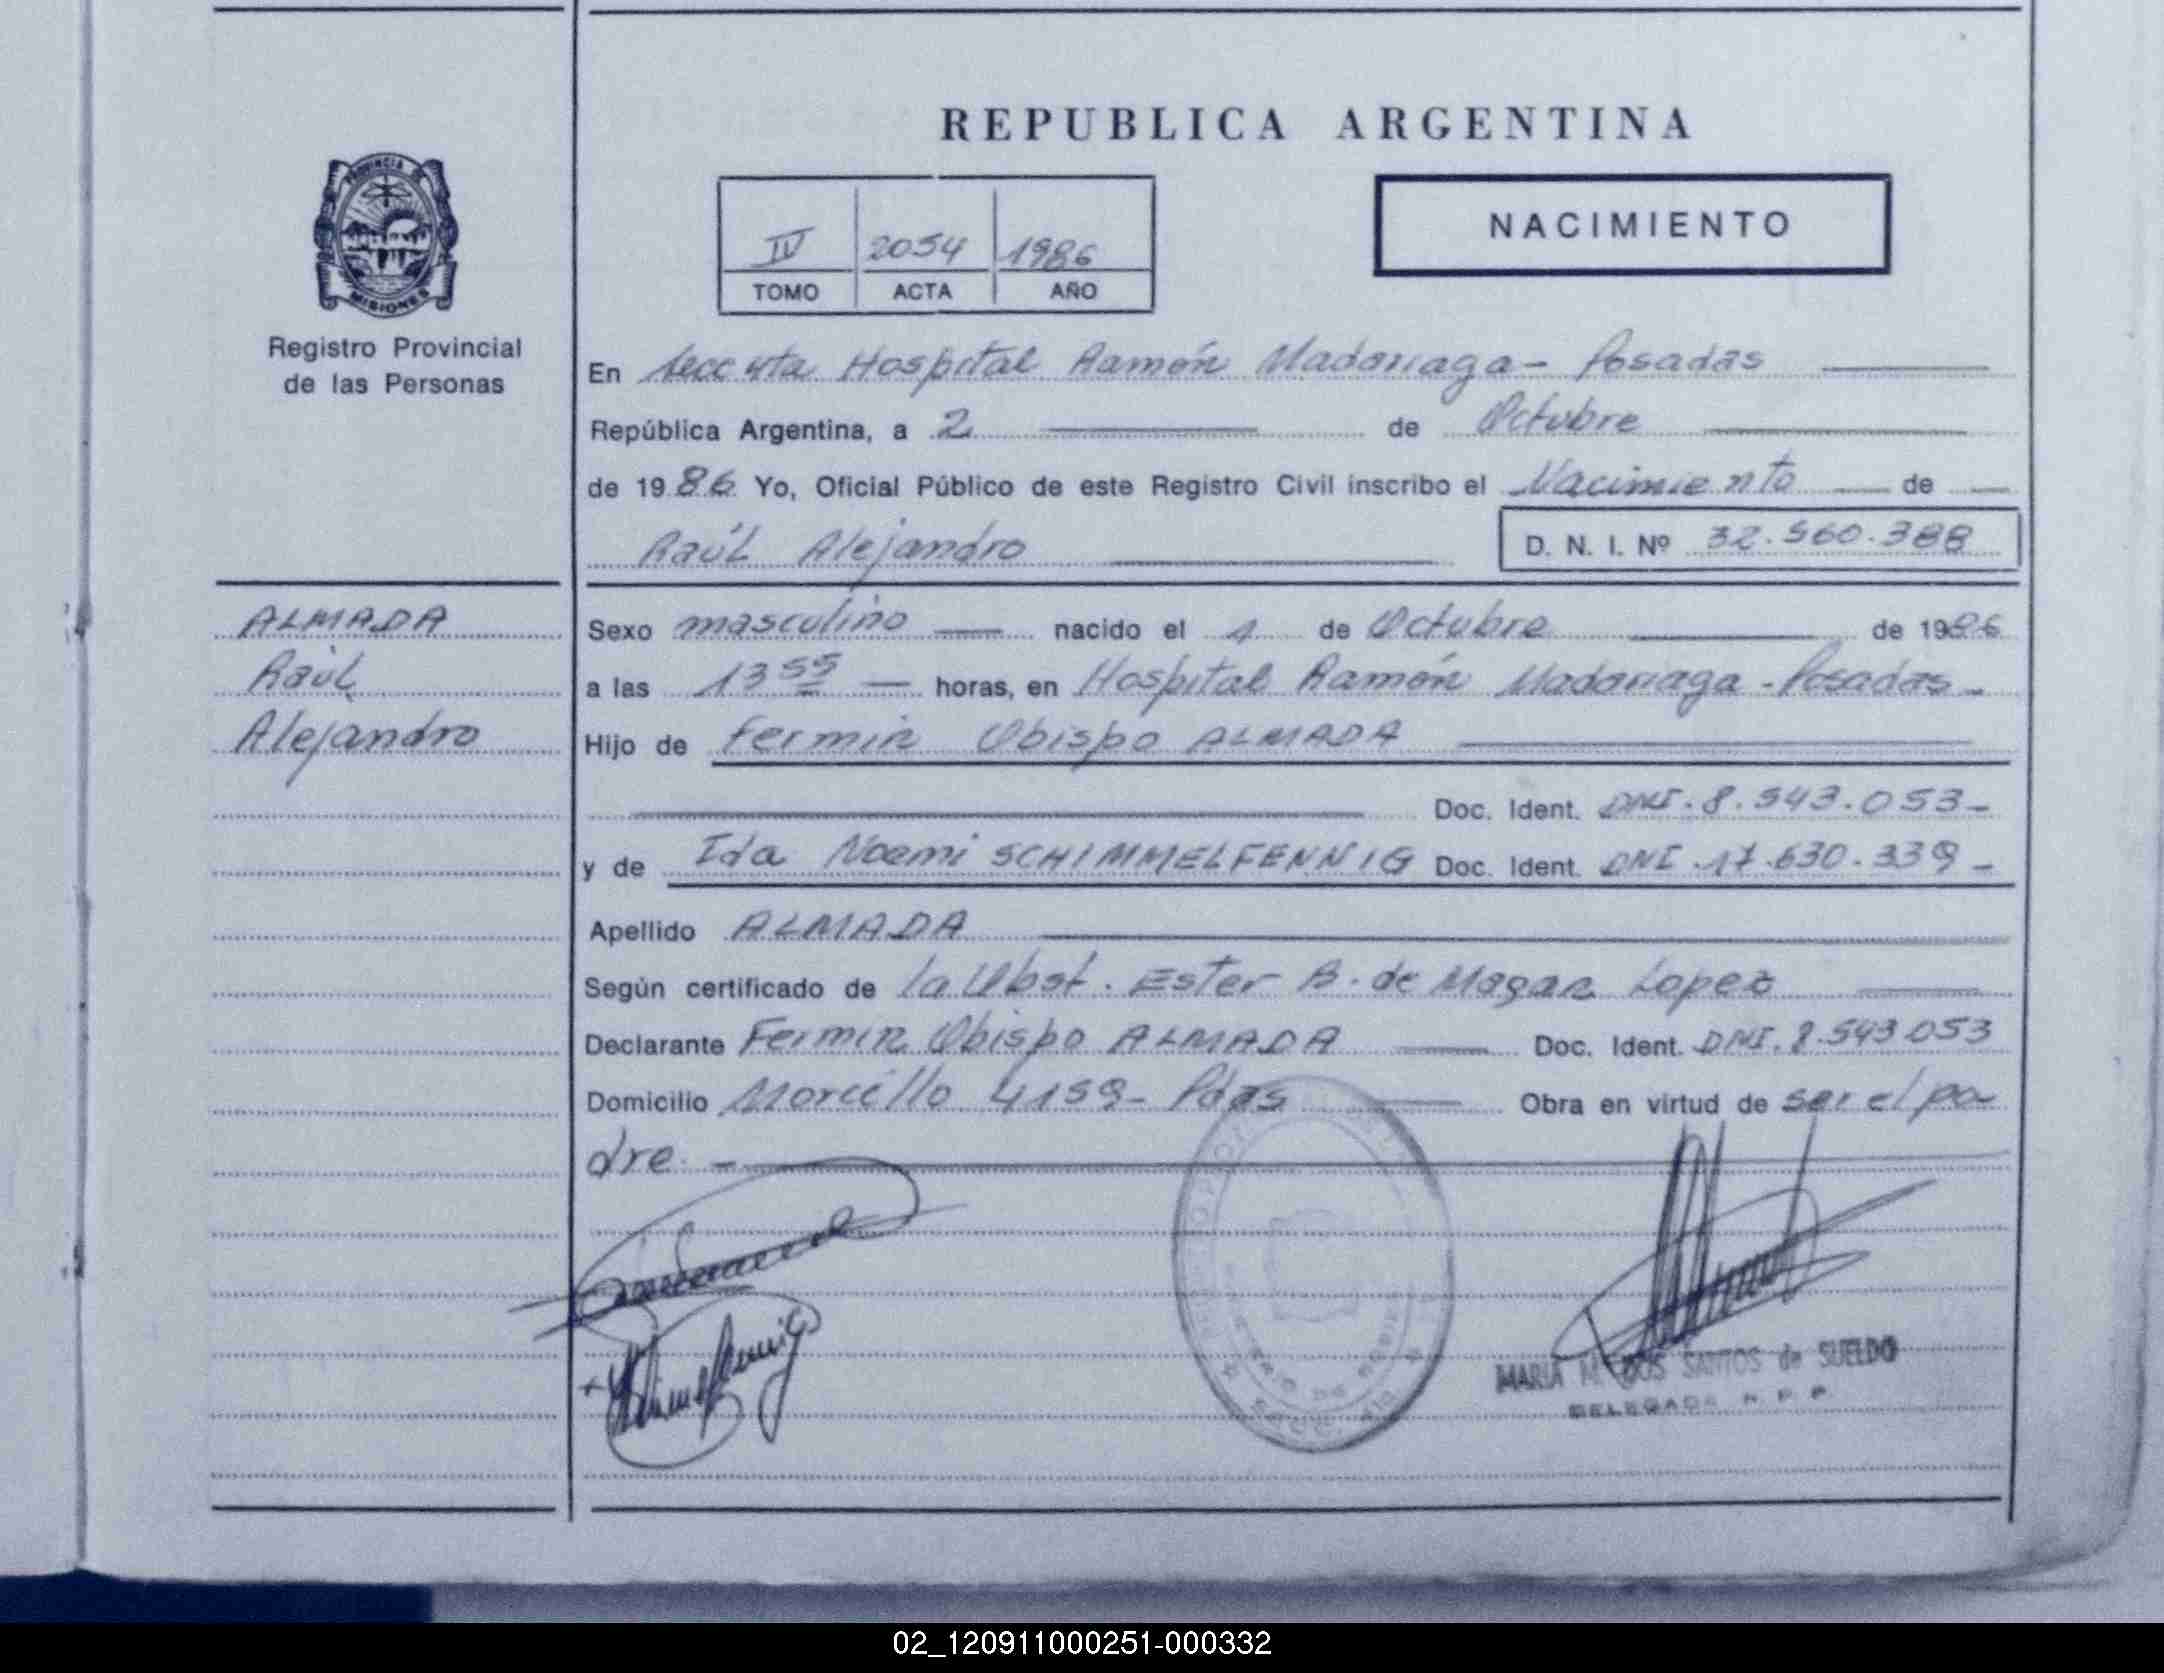 REPUBLICA ARGENTINA
PROVINCIA DE
MISIONES
Registro Provincial
de las Personas
IV 2054 1986
TOMO ACTA AÑO
NACIMIENTO
En Hospital Ramón Madariaga - Posadas
República Argentina, a 2 de Octubre
de 1986 Yo, Oficial Público de este Registro Civil inscribo el Nacimiento de
Raúl Alejandro D. N. I. Nº 32.560.388
ALMADA
Raúl
Alejandro
Sexo masculino nacido el 1 de Octubre de 1986
a las 13 55 horas, en Hospital Ramón Madariaga - Posadas -
Hijo de Fermin Obispo ALMADA
Doc. Ident. DNI. 8.543.053-
y de Ida Noemi SCHIMMELFENNIG Doc. Ident. DNI. 17.630.339 -
Apellido ALMADA
Según certificado de la Obst. Ester B. de Magan Lopez
Declarante Fermin Obispo ALMADA Doc. Ident. DNI. 8.543.053
Domicilio Morcillo 4159- Pdas Obra en virtud de ser el pa
dre. -
MARIA M. DOS SANTOS de SUELDO
DELEGADA R. P. P.
02_120911000251-000332